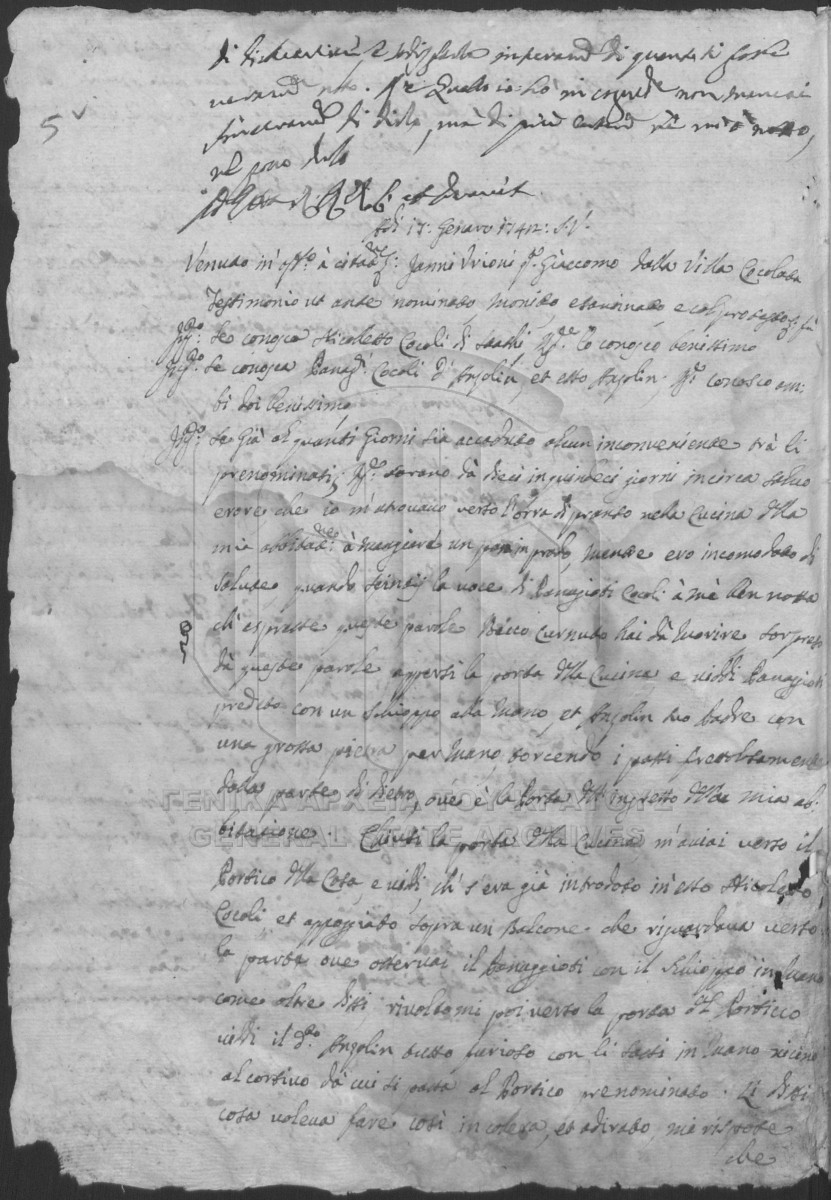 5
di questi
non mancai
di dirlo, mà di più nè m'è noto,
adi 17: Genaro 1742: S.V.
Venuto in off.o à citad.ne Janni Vrioni q. Giaccomo dalla Villa Cocolata
Testimonio ut ante nominato monito, esaminato, e col protesto, fù
Int.o se conosca Nicoletto Cocoli di Stathi R.de lo conosco benissimo
Int.o se conosca Panag.i Cocoli d'Anzolin, et esso Anzolin, R. conosco am:
bi doi benissimo
Int.o se già alquanti giorni sia accaduto alcun inconveniente trà li
prenominati; R. sarano dà dieci in quindeci giorni incirca salvo
erore che io m'atrovavo verso l'orra di pranso nella Cucina della
mia abbitat.ne à mangiare un pan in brodo, mentre ero incomodato di
salute, quando sentij la voce di Panagioti Cocoli à mè ben notta
ch'espresse queste parole Becco Cornuto hai dà morire sorpreso
dà queste parole appersi la porta della Cucina e viddi Panaggioti
predetto con un schioppo alla mano, et Anzolin suo Padre con
una grossa pietra per mano, torcendo i passi frettolosamente
dalla parte di dietro, ove è la Porta dell'ingresso della mia ab:
bitatione. Chiusi la porta della Cucina m'aviai verso il
Portico della Casa, e viddi, ch's'era già introdoto in esso Nicoletto
Cocoli et appoggiato sopra un Balcone che riguardava verso
la parte ove osservai il Panaggioti con il schioppo in mano
come oltre dissi rivoltomi poi verso la porta del Portico
viddi il d.to Anzolin tutto furioso con li sassi in mano vicino
al cortivo dà cui si passa al Portico prenominato. Li dissi
cosa voleva fare così in colera, et adirato, mi rispose
che
ΓΕΝΙΚΑ ΑΡΧΕΙΑ ΤΟΥ ΚΡΑΤΟΥΣ
GENERAL STATE ARCHIVES